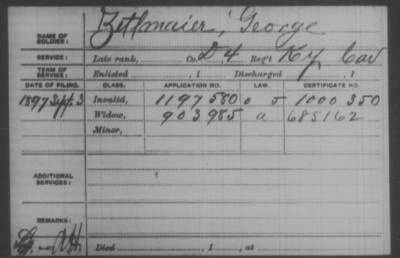 NAME OF SOLDIER: Zittmaier, George
SERVICE: Late rank, Co. D 4 Reg't Ky Cav
TERM OF SERVICE: Enlisted , 1 Discharged , 1
DATE OF FILING. CLASS. APPLICATION NO. LAW. CERTIFICATE NO.
1897 Sept. 3 Invalid, 1197580 1000350
Widow, 903985 a 685162
Minor,
ADDITIONAL SERVICES:
REMARKS:
Died , 1 , at